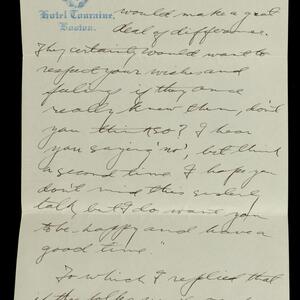 Hotel Touraine,
Boston.
would make a great
deal of difference.
They certainly would want to
respect your wishes and
feelings if they once
really knew them, don't
you think so? I hear
you saying 'no', but think
a second time. I hope you
don't mind this sisterly
talk, but I do want you
to be happy and have a
good time."
To which I replied that
if the folks